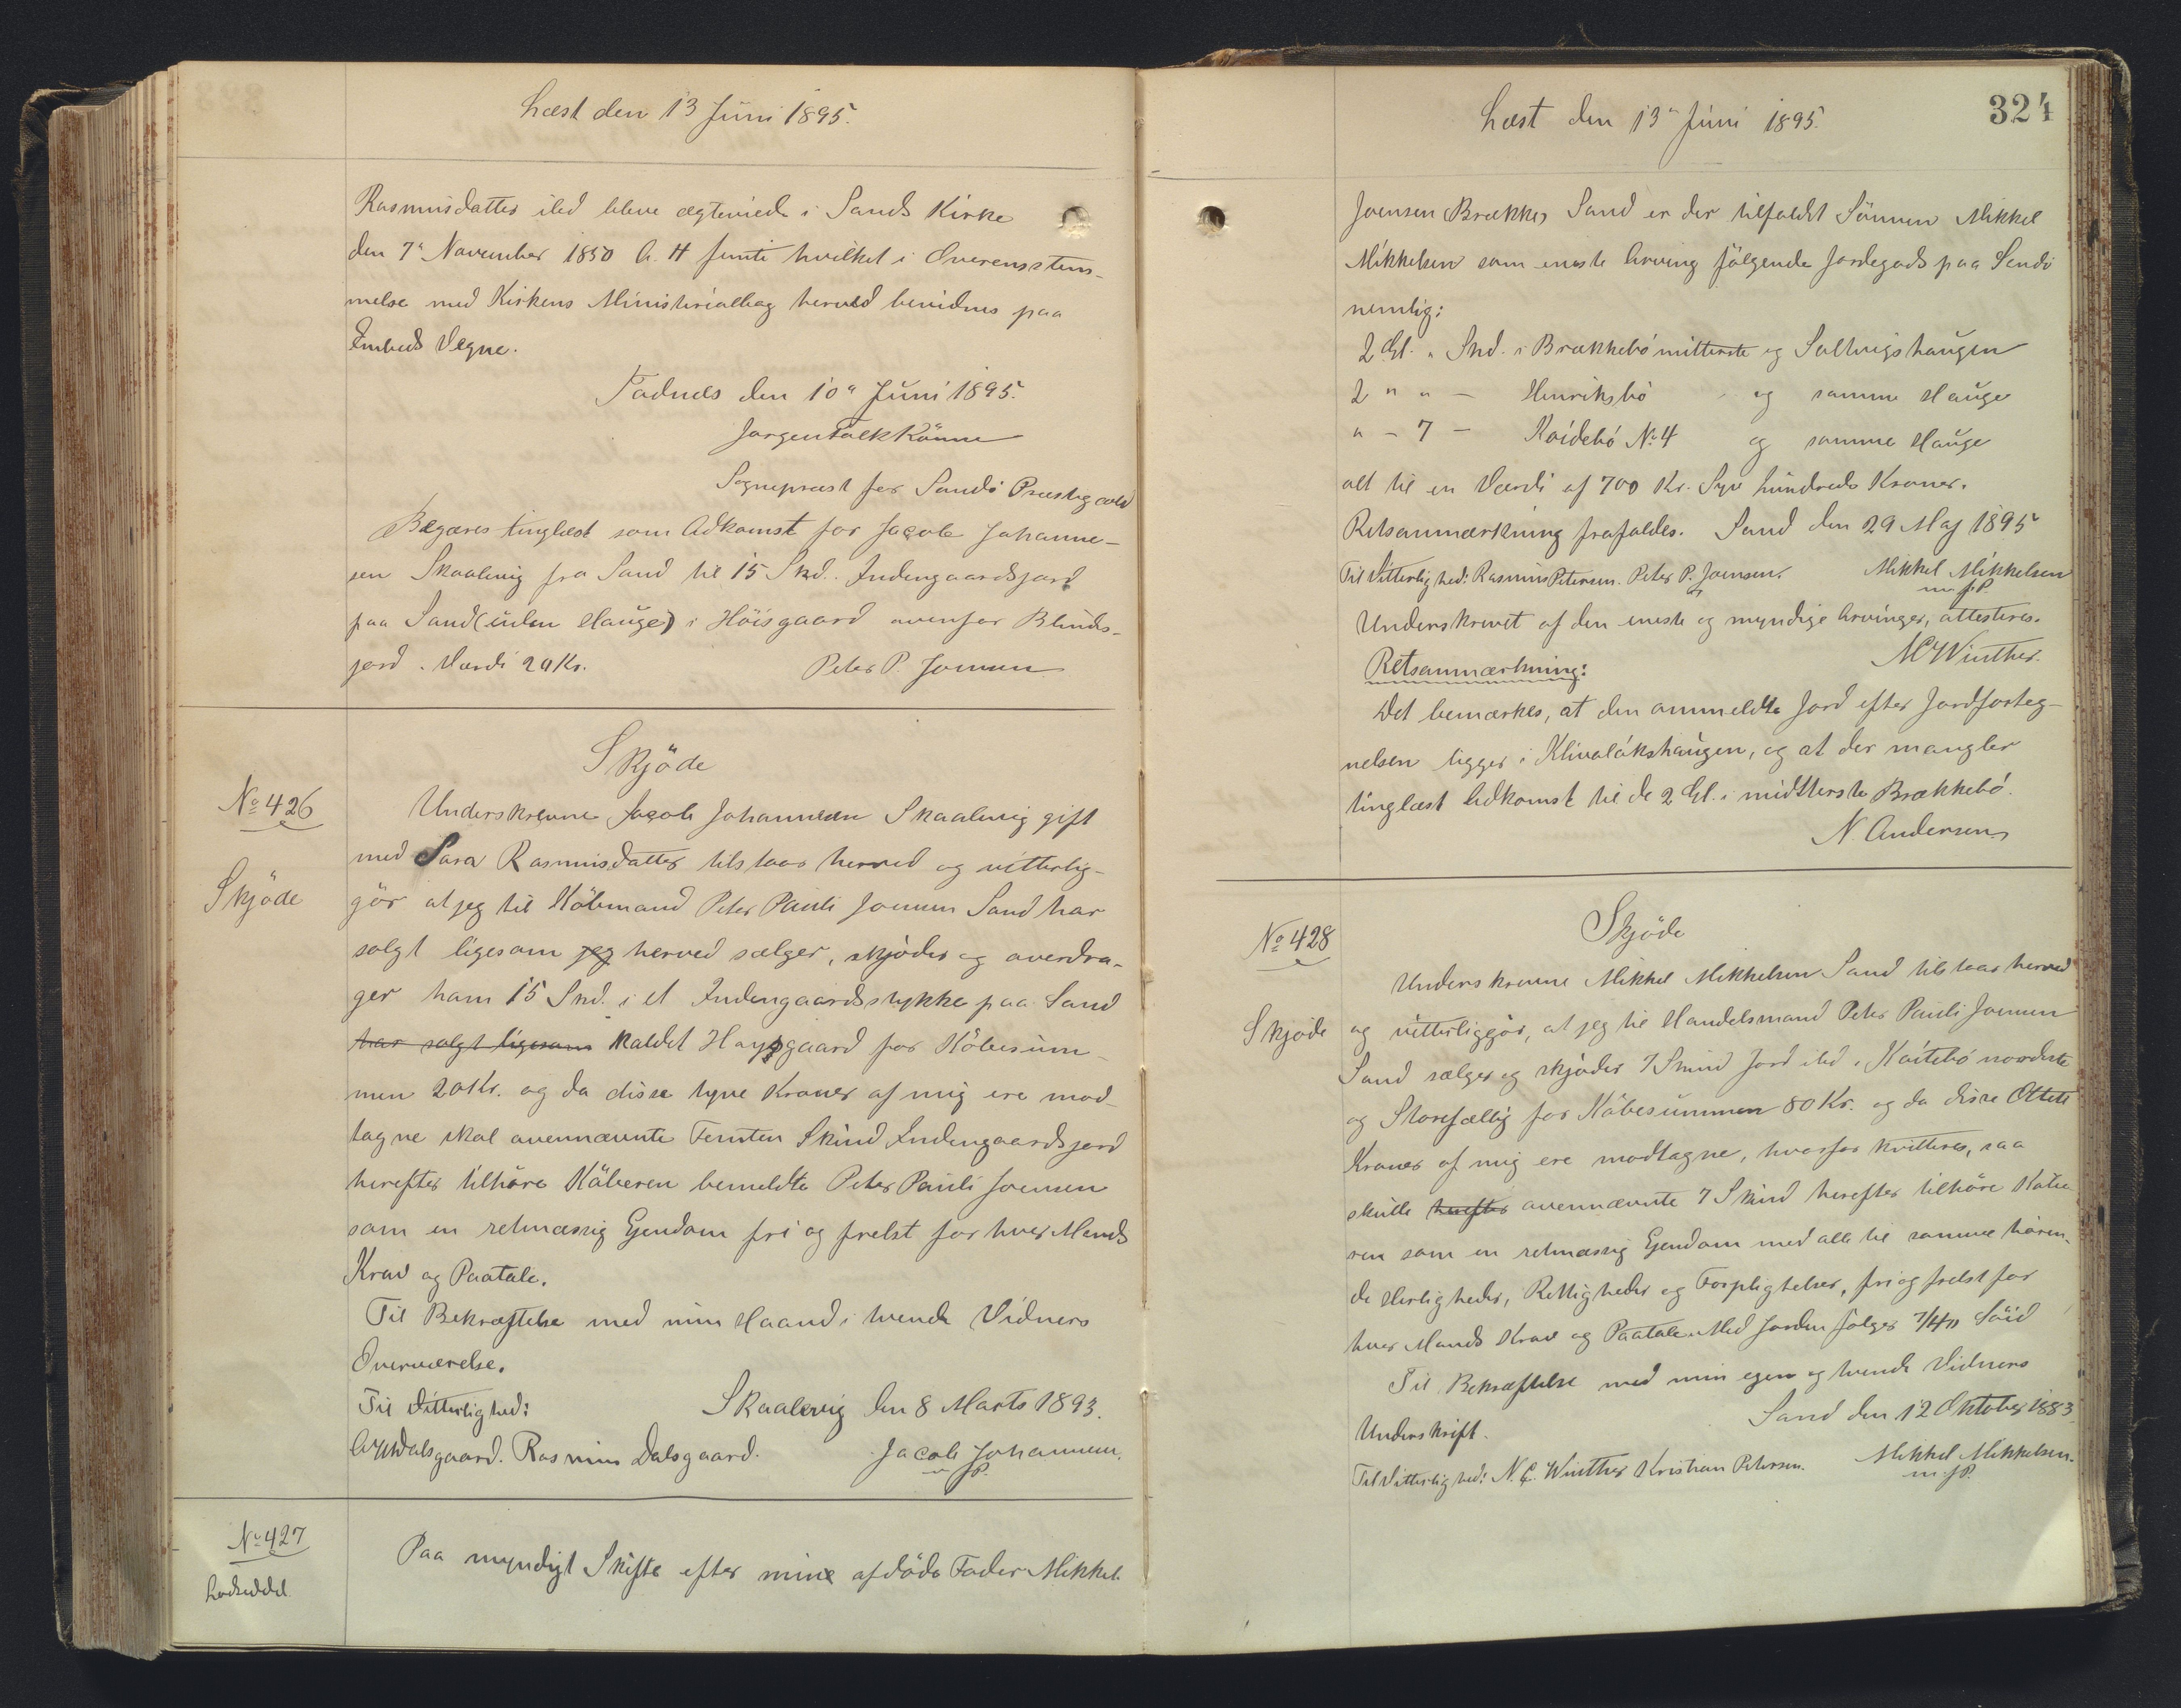 Læst den 13 Juni 1895.
Rasmusdatter ibd bleve ægteviede i Sands Kirke
den 7de November 1850 A. H femti hvilket i Overensstem-
melse med Kirkens Ministerialbog herved bevidnes paa
Embeds Vegne.
Todnæs den 10de Juni 1895.
Jørgen Falk Rönne
Sognepræst for Sandö Præstegæld
Begæres tinglæst som Adkomst for Jacob Johanne-
sen Skaalevig fra Sand til 15 Skd. Indengaardsjord
paa Sand (uden Hauge) i Höisgaard ovenfor Blinds-
jord. Værdi 20 Kr. Peter P. Joensen
Skjöde
No 426
Skjöde
Underskrevne Jacob Johannesen Skaalevig gift
med Sara Rasmusdatter tilstaar herved og vitterlig-
gör at jeg til Köbmand Peter Pauli Joensen Sand har
solgt ligesom jeg herved sælger, skjöder og overdra-
ger ham 15 Snd. i et Indengaardsstykke paa Sand
har solgt ligesom kaldet Haysgaard for Köbesum-
men 20 Kr. og da disse tyve Kroner af mig ere mod-
tagne skal ovennævnte Femten Skind Indengaardsjord
herefter tilhöre Köberen bemeldte Peter Pauli Joensen
som en retmæssig Ejendom fri og frelst for hver Mands
Krav og Paatale.
Til Bekræftelse med min Haand i tvende Vidners
Overværelse.
Til Vitterlighed: Skaalevig den 8 Marts 1893.
Dalsgaard. Rasmus Dalsgaard. Jacob Johannesen.
m f P.
No 427
Lodseddel.
Paa myndigt Skifte efter mine afdöde Fader Mikkel
324
Læst den 13de Juni 1895.
Joensen Brekker Sand er der tilfaldt Sönnen Mikkel
Mikkelsen som eneste Arving fölgende Jordegods paa Sandö
nemlig:
2 Gl. " Snd. i Brækkebö mitterste og Saltvigshaugen
2 " " – Henriksbö og samme Hauge
" – 7 – Koidebö No 4 og samme Hauge
alt til en Værdi af 700 Kr. Syv hundrede Kroner.
Retsanmærkning frafaldes. Sand den 29 Maj 1895
Til Vitterlighed: Rasmus Petersen. Peter P. Joensen. Mikkel Mikkelsen
m. f. P.
Underskrevet af den eneste og myndige Arvinger, attesteres.
Winther.
Retsanmærkning:
Det bemærkes, at den anmeldte Jord efter Jordforteg-
nelsen ligger i Klivalökshaugen, og at der mangler
tinglæst Adkomst til de 2 Gl. i midtterste Brækkebö.
N. Andersen
No 428
Skjöde
Skjöde
Underskrevne Mikkel Mikkelsen Sand tilstaar herved
og vitterliggör, at jeg til Handelsmand Peter Pauli Joensen
Sand sælger og skjöder 7 Skind Jord ibd. i Koitebö norderste
og Storefællig for Köbesummen 80 Kr. og da disse Otteti
Kroner af mig ere modtagne, hvorfor kvitteres, saa
skulle herefter ovennævnte 7 Skind herefter tilhöre Köbe
ren som en retmæssig Ejendom med alle til samme hören-
de Herligheder, Rettigheder og Forpligtelser, fri og frelst for
hver Mands Krav og Paatale. Med Jorden fölger 7/40 Söid
Til Bekræftelse med min egen og tvende Vidners
Underskrift. Sand den 12 Oktober 1883
Til Vitterlighed: N. C. Winther Kristian Petersen. Mikkel Mikkelsen.
m. f P.